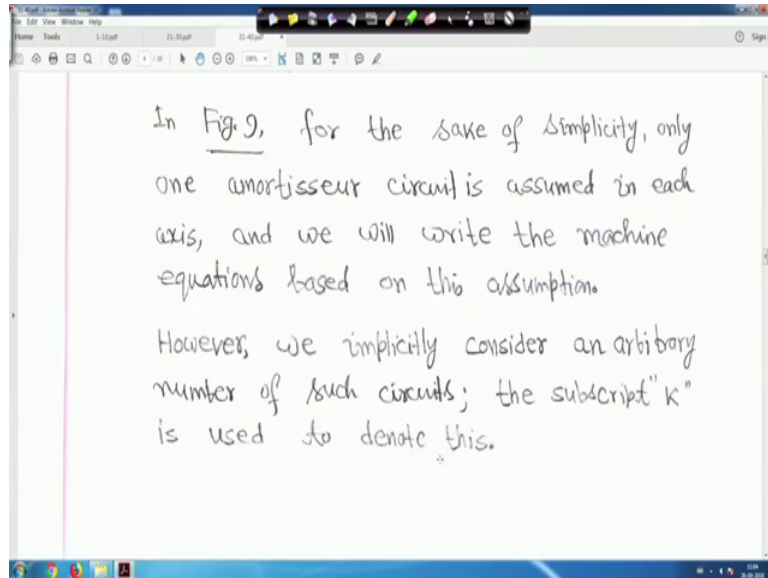 File Edit View Window Help
Home Tools 1-10.pdf 21-30.pdf 31-40.pdf Sign
In Fig. 9, for the sake of simplicity, only
one amortisseur circuit is assumed in each
axis, and we will write the machine
equations based on this assumption.
However, we implicitly consider an arbitrary
number of such circuits; the subscript "K"
is used to denote this.
11:04